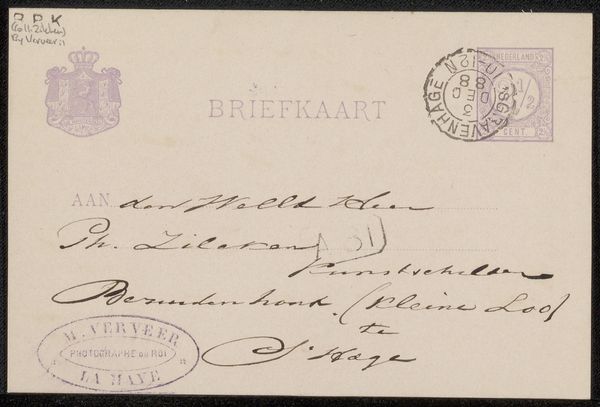 R P K
(coll. Zilcken)
By Verveer
BRIEFKAART
NEDERLAND
2 1/2
CENT.
'SGRAVENHAGE
3
DEC
88
10-12N
AAN den Weled Heer
Ph. Zilcken
Kunstschilder
Bezuidenhout. (Kleine Loo)
te
S'Hage
M. VERVEER
PHOTOGRAPHE DU ROI
LA HAYE